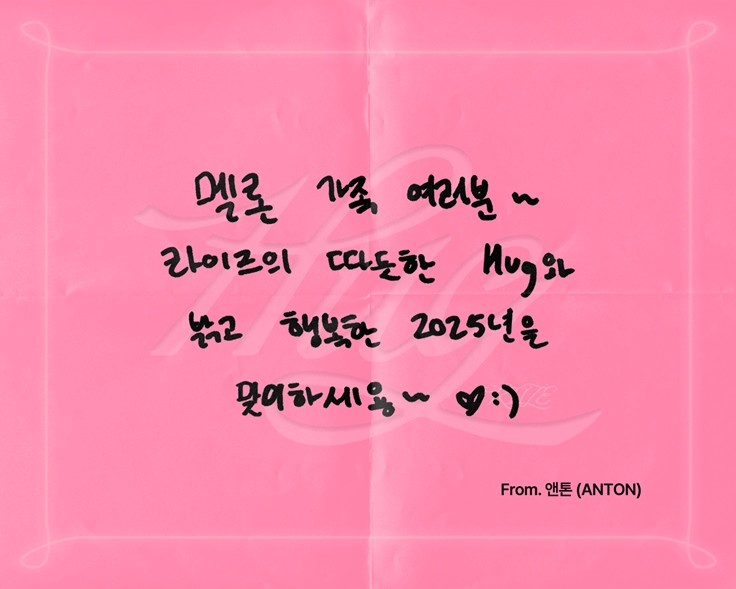 멜론 가족 여러분~
라이즈의 따듯한 Hug와
밝고 행복한 2025년을
맞이하세용~ ♥:)
From. 앤톤 (ANTON)
Hug